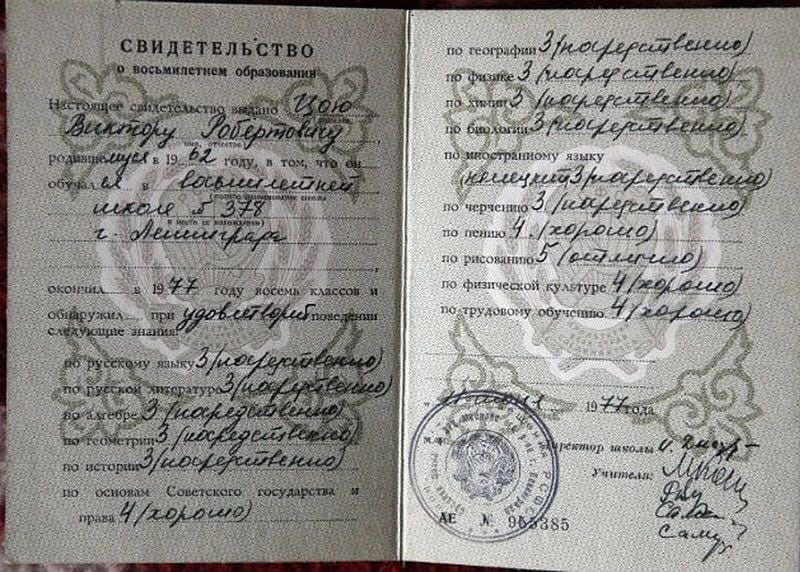 СВИДЕТЕЛЬСТВО
о восьмилетнем образовании
Настоящее свидетельство выдано Цою
Виктору Робертовичу
имя, отчество
родившемуся в 1962 году, в том, что он
обучался в восьмилетней
школе № 378
г. Ленинграда
окончил в 1977 году восемь классов и
обнаружил при удовлетворит поведении
следующие знания:
по русскому языку 3 (посредственно)
по русской литературе 3 (посредственно)
по алгебре 3 (посредственно)
по геометрии 3 (посредственно)
по истории 3 (посредственно)
по основам Советского государства и
права 4 (хорошо)
по географии 3 (посредственно)
по физике 3 (посредственно)
по химии 3 (посредственно)
по биологии 3 (посредственно)
по иностранному языку
(немецкий) 3 (посредственно)
по черчению 3 (посредственно)
по пению 4 (хорошо)
по рисованию 5 (отлично)
по физической культуре 4 (хорошо)
по трудовому обучению 4 (хорошо)
1977 года
Директор школы
Учителя:
АЕ № 965385